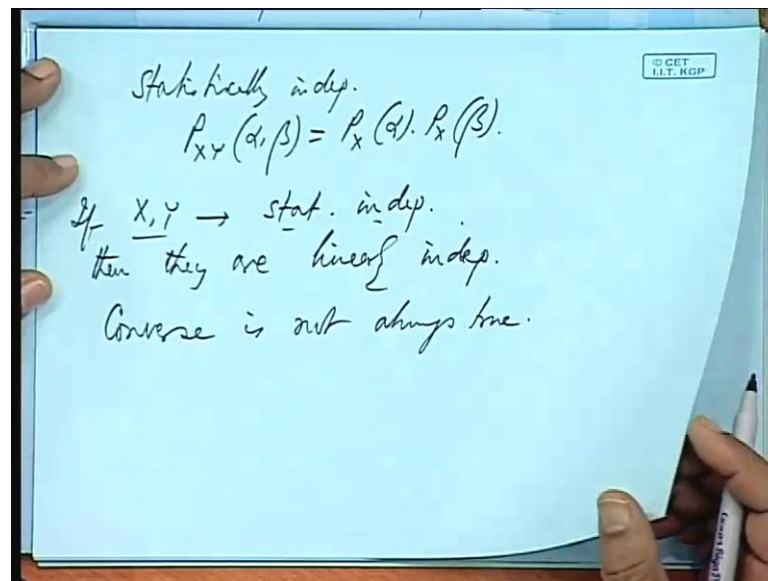 © CET
I.I.T. KGP
Statistically indep.
P_XY (α, β) = P_X (α). P_X (β).
If X, Y → stat. indep.
then they are linearly indep.
Converse is not always true.